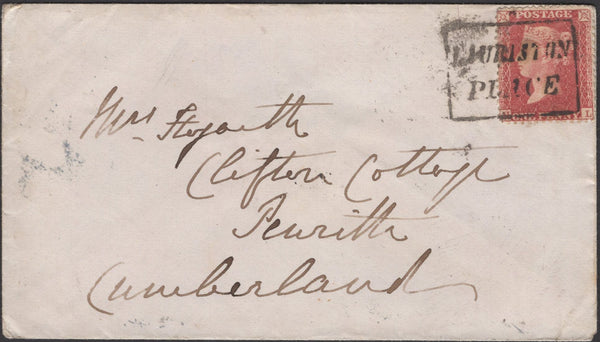 POSTAGE
LAURISTON
PLACE
Mrs Hogarth
Clifton Cottage
Penrith
Cumberland